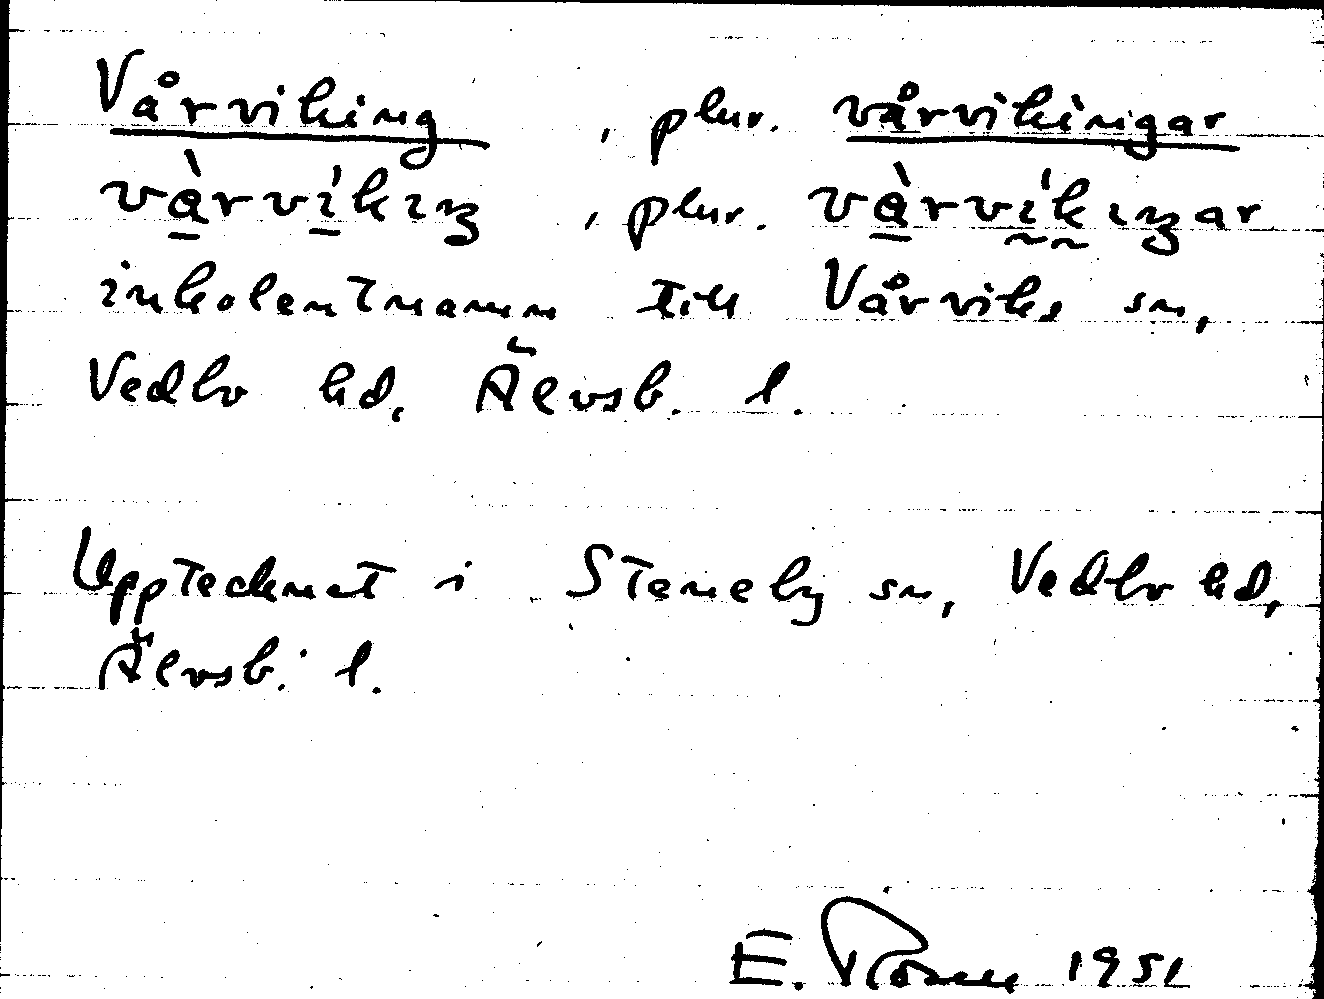 Vårviking, plur. vårvikingar
vàrvíkıŋ, plur. vàrvíkıŋar
inkolentnamn till Vårviks sn,
Vedbo hd, Älvsb. l.
Upptecknat i Steneby sn, Vedbo hd,
Älvsb. l.
E. 1951